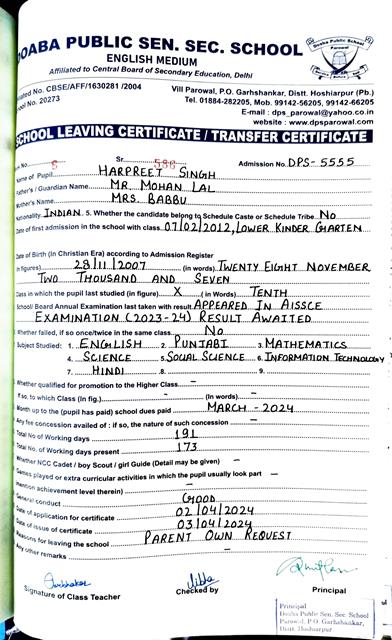 DOABA PUBLIC SEN. SEC. SCHOOL
ENGLISH MEDIUM
Affiliated to Central Board of Secondary Education, Delhi
Doaba Public School
Parowal
ated No. CBSE/AFF/1630281 /2004
ool No. 20273
Vill Parowal, P.O. Garhshankar, Distt. Hoshiarpur (Pb.)
Tel. 01884-282205, Mob. 99142-56205, 99142-66205
E-mail : dps_parowal@yahoo.co.in
website : www.dpsparowal.com
SCHOOL LEAVING CERTIFICATE / TRANSFER CERTIFICATE
No. 6 Sr. 586 Admission No. DPS-5555
Name of Pupil HARPREET SINGH
Father's / Guardian Name MR. MOHAN LAL
Mother's Name MRS. BABBU
Nationality INDIAN 5. Whether the candidate belong to Schedule Caste or Schedule Tribe No
Date of first admission in the school with class 07/02/2012, LOWER KINDER GHARTEN
Date of Birth (In Christian Era) according to Admission Register
in figures) 28/11/2007 (in words) TWENTY EIGHT NOVEMBER
TWO THOUSAND AND SEVEN
Class in which the pupil last studied (in figure) X (in Words) TENTH
School/ Board Annual Examination last taken with result APPEARED IN AISSCE
EXAMINATION (2023-24) RESULT AWAITED
Whether failed, if so once/twice in the same class. No
Subject Studied: 1. ENGLISH 2. PUNJABI 3. MATHEMATICS
4. SCIENCE 5. SOCIAL SCIENCE 6. INFORMATION TECHNOLOGY
7. HINDI 8. 9.
Whether qualified for promotion to the Higher Class. –
If so, to which Class (In fig.) – (In words) –
Month up to the (pupil has paid) school dues paid MARCH - 2024
Any fee concession availed of : if so, the nature of such concession –
Total No of Working days 191
Total No. of Working days present 173
Whether NCC Cadet / boy Scout / girl Guide (Detail may be given) –
Games played or extra curricular activities in which the pupil usually look part –
mention achievement level therein)
General conduct GOOD
Date of application for certificate 02/04/2024
Date of issue of certificate 03/04/2024
Reasons for leaving the school PARENT OWN REQUEST
Any other remarks –
Signature of Class Teacher Checked by Principal
Principal
Doaba Public Sen. Sec. School
Parowal, P.O. Garhshankar,
Distt. Hoshiarpur